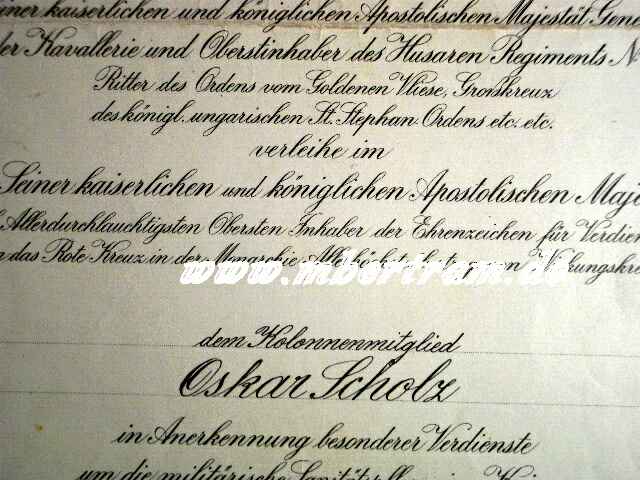 Seiner kaiserlichen und königlichen Apostolischen Majestät Gene
der Kavallerie und Oberstinhaber des Husaren Regiments N
Ritter des Ordens vom Goldenen Vliese, Großkreuz
des königl. ungarischen St. Stephan Ordens etc. etc.
verleihe im
Seiner kaiserlichen und königlichen Apostolischen Maje
Allerdurchlauchtigsten Obersten Inhaber der Ehrenzeichen für Verdien
das Rote Kreuz in der Monarchie Wirkungskre
www.mbertram.de
dem Kolonnenmitglied
Oskar Scholz
in Anerkennung besonderer Verdienste
um die militärische